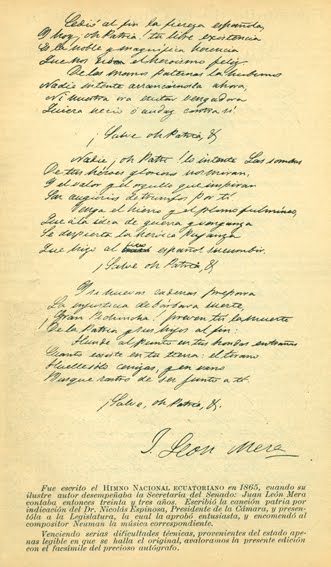 Cedió al fin la fiereza española,
Y hoy, oh Patria, tu libre existencia
Es la noble y magnífica herencia
Que nos el heroismo feliz.
De las manos paternas la hubimos
Nadie intente arrancárnosla ahora,
Ni nuestra ira excitar vengadora
Quiera necio ó audaz contra sí
¡Salve oh Patria, &
Nadie, oh Patria lo intente Las sombras
De tus héroes gloriosos nos miran,
Y el valor y el orgullo que inspiran
Son augurios de triunfos por ti
Venga el hierro y el plomo fulmíneo,
Que á la idea de guerra y venganza
Se despierta la heroica pujanza
Que hizo al español sucumbir.
¡Salve oh Patria, &
Y si nuevas cadenas prepara
La injusticia de bárbara suerte,
¡Gran Pichincha! prevén tu la muerte
De la Patria y sus hijos al fin:
Hunde al punto en tus hondas entrañas
Cuanto existe en tu tierra: el tirano
Huelle sólo cenizas y en vano
Busque rastro de ser junto á ti.
¡Salve, oh Patria, &.
J. León Mera
Fue escrito el HIMNO NACIONAL ECUATORIANO en 1865, cuando su
ilustre autor desempeñaba la Secretaría del Senado: Juan León Mera
contaba entonces treinta y tres años. Escribió la canción patria por
indicación del Dr. Nicolás Espinosa, Presidente de la Cámara, y presen-
tóla a la Legislatura, la cual la aprobó entusiasta, y encomendó al
compositor Neuman la música correspondiente.
Venciendo serias dificultades técnicas, provenientes del estado ape-
nas legible en que se halla el original, avaloramos la presente edición
con el facsímile del precioso autógrafo.